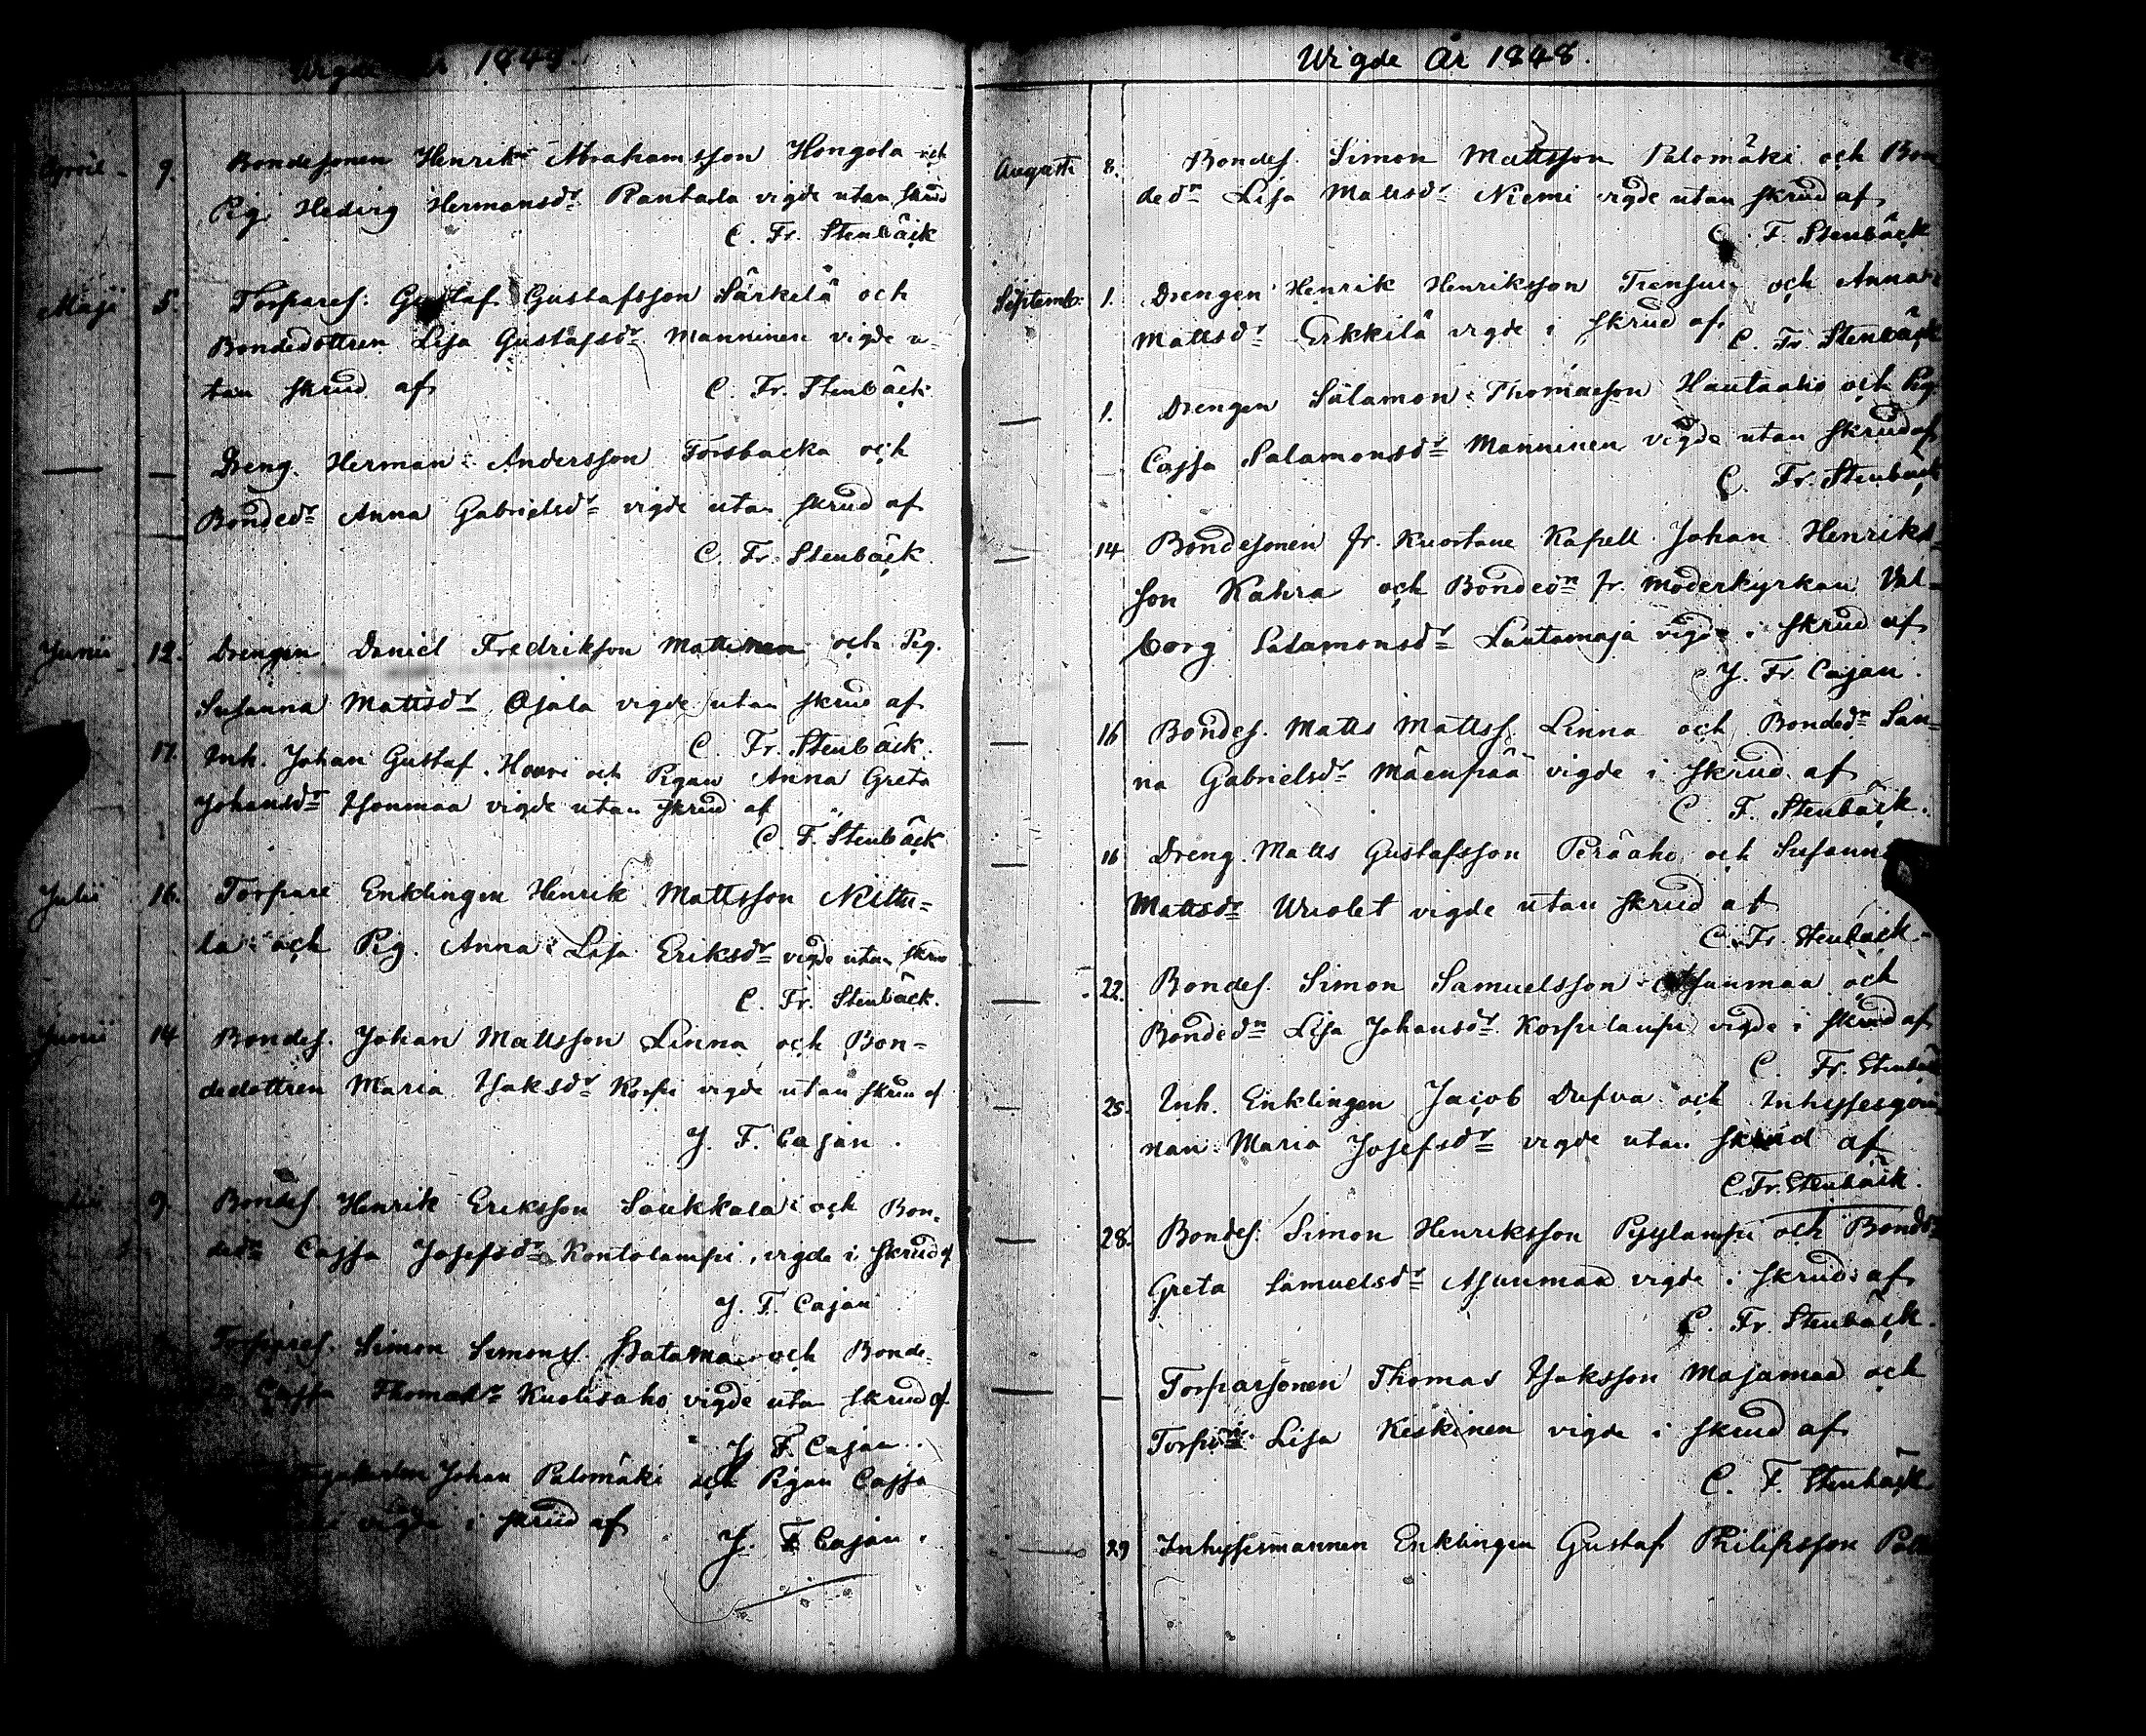 Wigde År 1848.
April 9. Bondesonen Henrik Abrahamsson Hongola och
Pig. Hedvig Hermansdr Rantala vigde utan skrud
C. Fr. Stenbäck
Maji 5. Torpares: Gustaf Gustafsson Särkelä och
Bondedottren Lisa Gustafsdr Manninen vigde u=
tan skrud af C. Fr. Stenbäck
— — Dreng. Herman Andersson Forsbacka och
Bondedr Anna Gabrielsdr vigde utan skrud af
C. Fr. Stenbäck.
Junii 12. Drengen Daniel Fredrikson Mattinen och Pig.
Susanna Mattsdr Ojala vigde utan skrud af
C. Fr. Stenbäck.
17. Inh. Johan Gustaf och Pigan Anna Greta
Johansdr vigde utan skrud af
C. F. Stenbäck
Julii 16. Torpare Enklingen Henrik Mattsson Niittu=
la och Pig. Anna Lisa Eriksdr vigde utan skrud
C. Fr. Stenbäck.
Junii 14 Bondes. Johan Mattsson Linna och Bon=
dedottren Maria Isaksdr Korpi vigde utan skrud af
J. F. Cajan.
9. Bondes. Henrik Eriksson Saukkola och Bon=
dedr Cajsa Josefsdr Kontolampi, vigde i skrud af
J. F. Cajan
Torpares. Simon Simonss. Satama och Bonde=
Cajsa Thomasdr Kuolisaho vigde utan skrud af
J. F. Cajan.
Johan Palomäki och Pigan Cajsa
vigde i skrud af J. F. Cajan.
Wigde År 1848.
Augusti 8. Bondes. Simon Mattsson Palomäki och Bon
dedn Lisa Mattsdr Niemi vigde utan skrud af
C. F. Stenbäck
Septemb: 1. Drengen Henrik Henriksson och Anna
Mattsdr Erkkilä vigde i skrud af C. Fr. Stenbäck
— 1. Drengen Salamon Thomasson Hautaaho och Pig.
Cajsa Salamonsdr Manninen vigde utan skrud af
C. Fr. Stenbäck
— 14 Bondesonen fr. Kuortane Kapell Johan Henriks=
son Kahra och Bondedn fr. Moderkyrkan Val=
borg Salamonsdr Lautamaja vigde i skrud af
J. Fr. Cajan.
— 16 Bondes. Matts Mattss. Linna och Bondedn San=
na Gabrielsdr Mäenpää vigde i skrud af
C. F. Stenbäck.
— 16 Dreng. Matts Gustafsson Peräaho och Susanna
Mattsdr vigde utan skrud af
C. Fr. Stenbäck.
— 22. Bondes. Simon Samuelsson Asunmaa och
Bondedn Lisa Johansdr Korpilampi vigde i skrud af
C. Fr. Stenbäck
— 25. Inh. Enklingen Jacob Dufva och Inhysesqvin
nan Maria Josefsdr vigde utan skrud af
C. Fr. Stenbäck.
— 28. Bondes. Simon Henriksson Pyylampi och Bonds
Greta Samuelsdr Asunmaa vigde i skrud af
C. Fr. Stenbäck.
— — Torparsonen Thomas Isaksson Majamaa och
Lisa Keskinen vigde i skrud af
C. F. Stenbäck
— 29 Inhysesmannen Enklingen Gustaf Philipsson